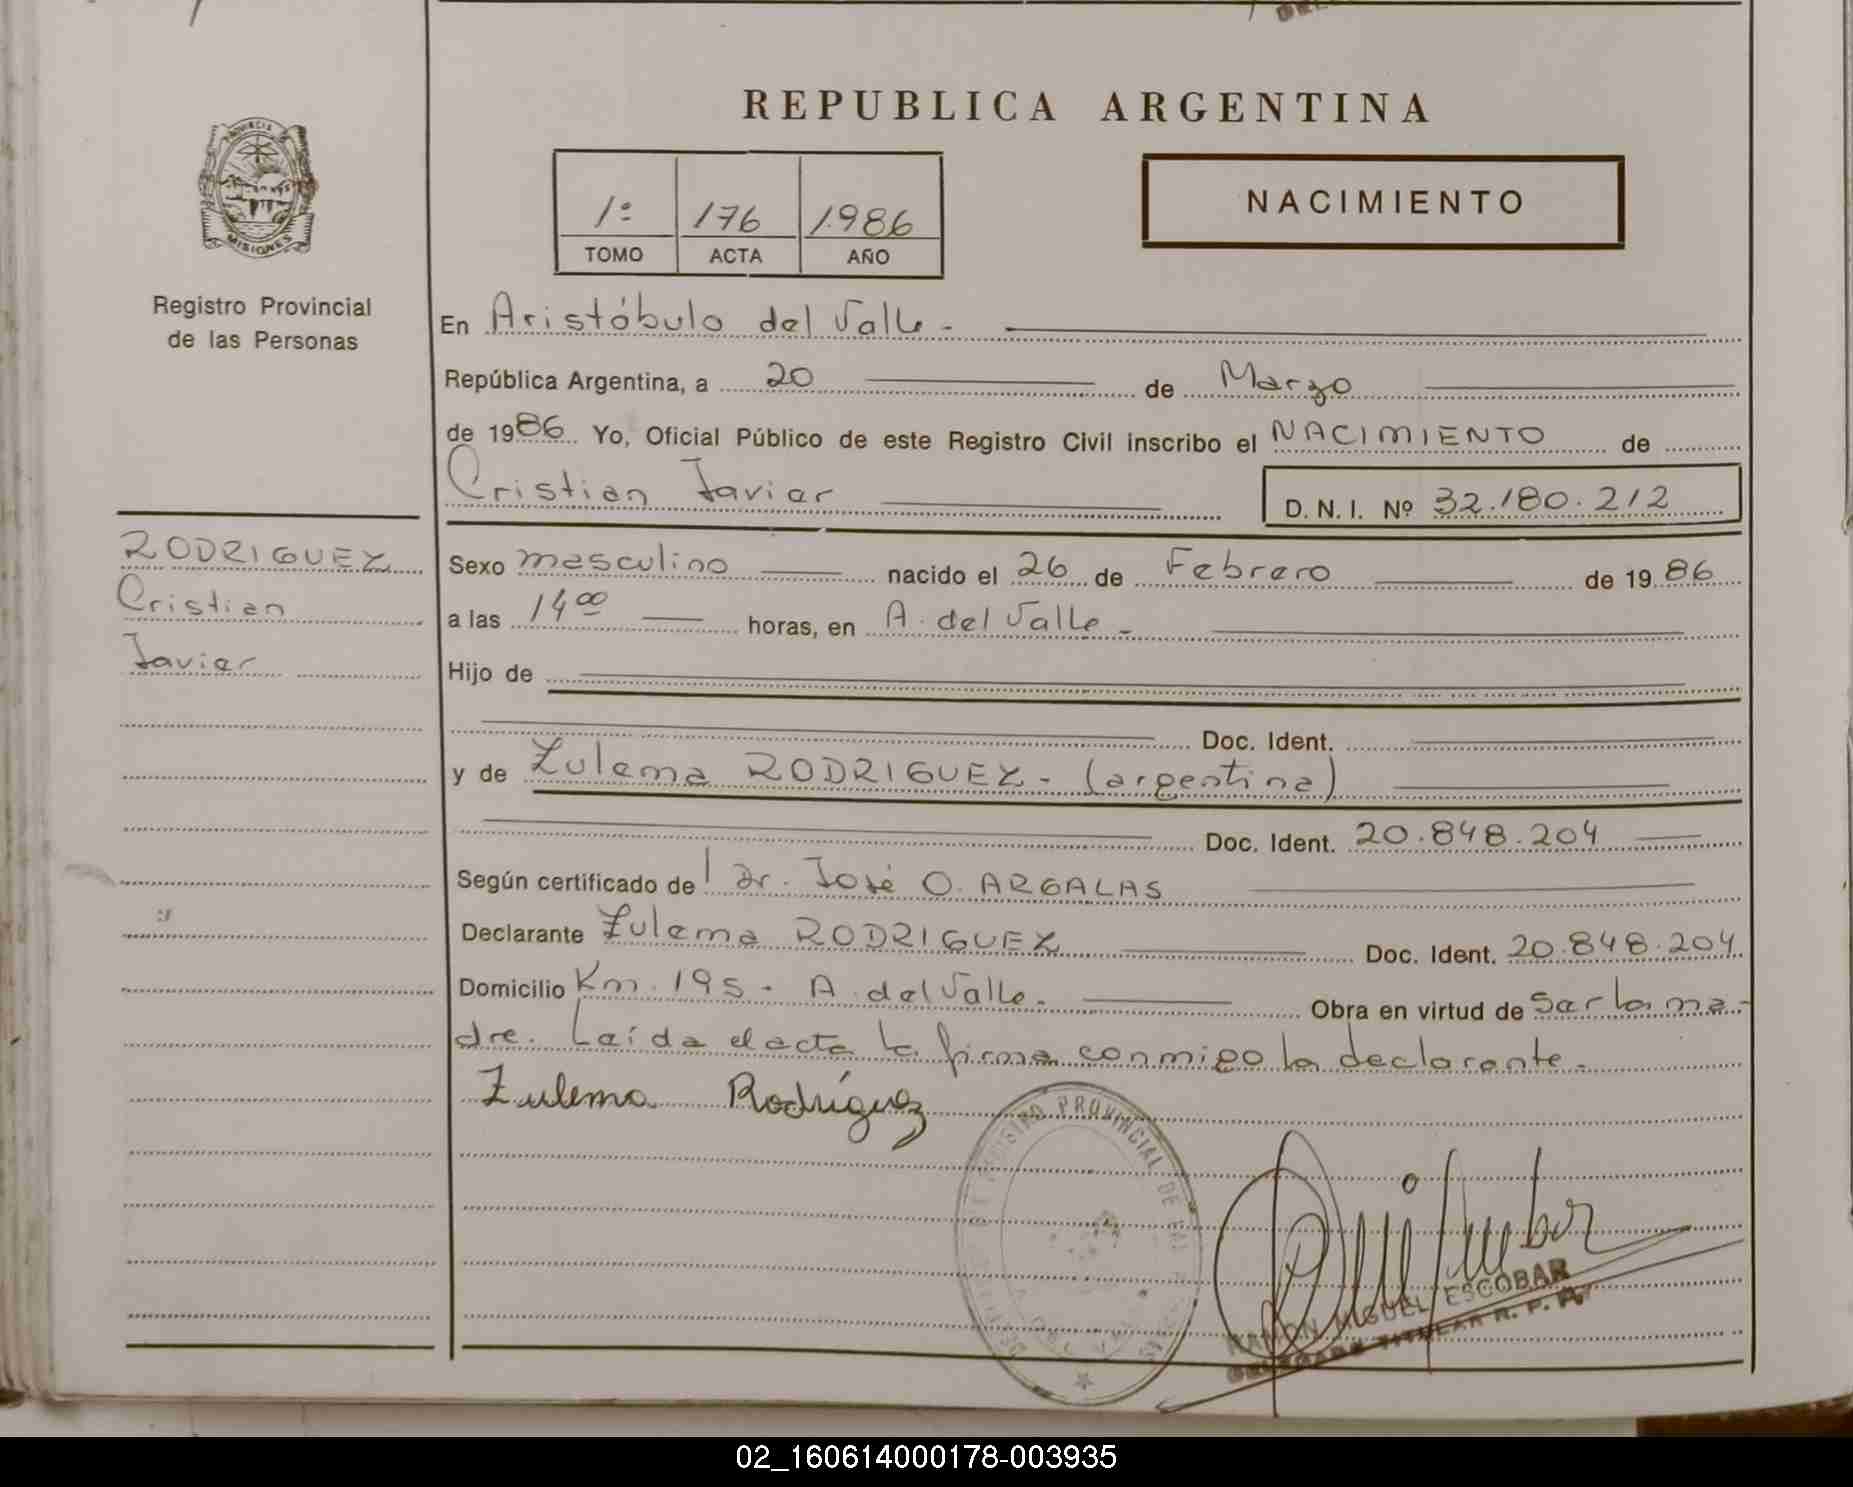 REPUBLICA ARGENTINA
PROVINCIA
MISIONES
1º 176 1986
TOMO ACTA AÑO
NACIMIENTO
Registro Provincial
de las Personas
En Aristóbulo del Valle -
República Argentina, a 20 de Marzo
de 1986 Yo, Oficial Público de este Registro Civil inscribo el NACIMIENTO de
Cristian Javier
D. N. I. Nº 32.180.212
RODRIGUEZ
Cristian
Javier
Sexo masculino nacido el 26 de Febrero de 1986
a las 14 00 horas, en A. del Valle -
Hijo de
Doc. Ident.
y de Zulema RODRIGUEZ - (argentina)
Doc. Ident. 20.848.204
Según certificado de Dr. José O. ARGALAS
Declarante Zulema RODRIGUEZ Doc. Ident. 20.848.204
Domicilio Km. 195 - A. del Valle. Obra en virtud de ser la ma-
dre. Leída el acta la firma conmigo la declarante.
Zulema Rodríguez
REGISTRO PROVINCIAL DE LAS
RAMON MIGUEL ESCOBAR
DELEGADO TITULAR R. P. P.
02_160614000178-003935